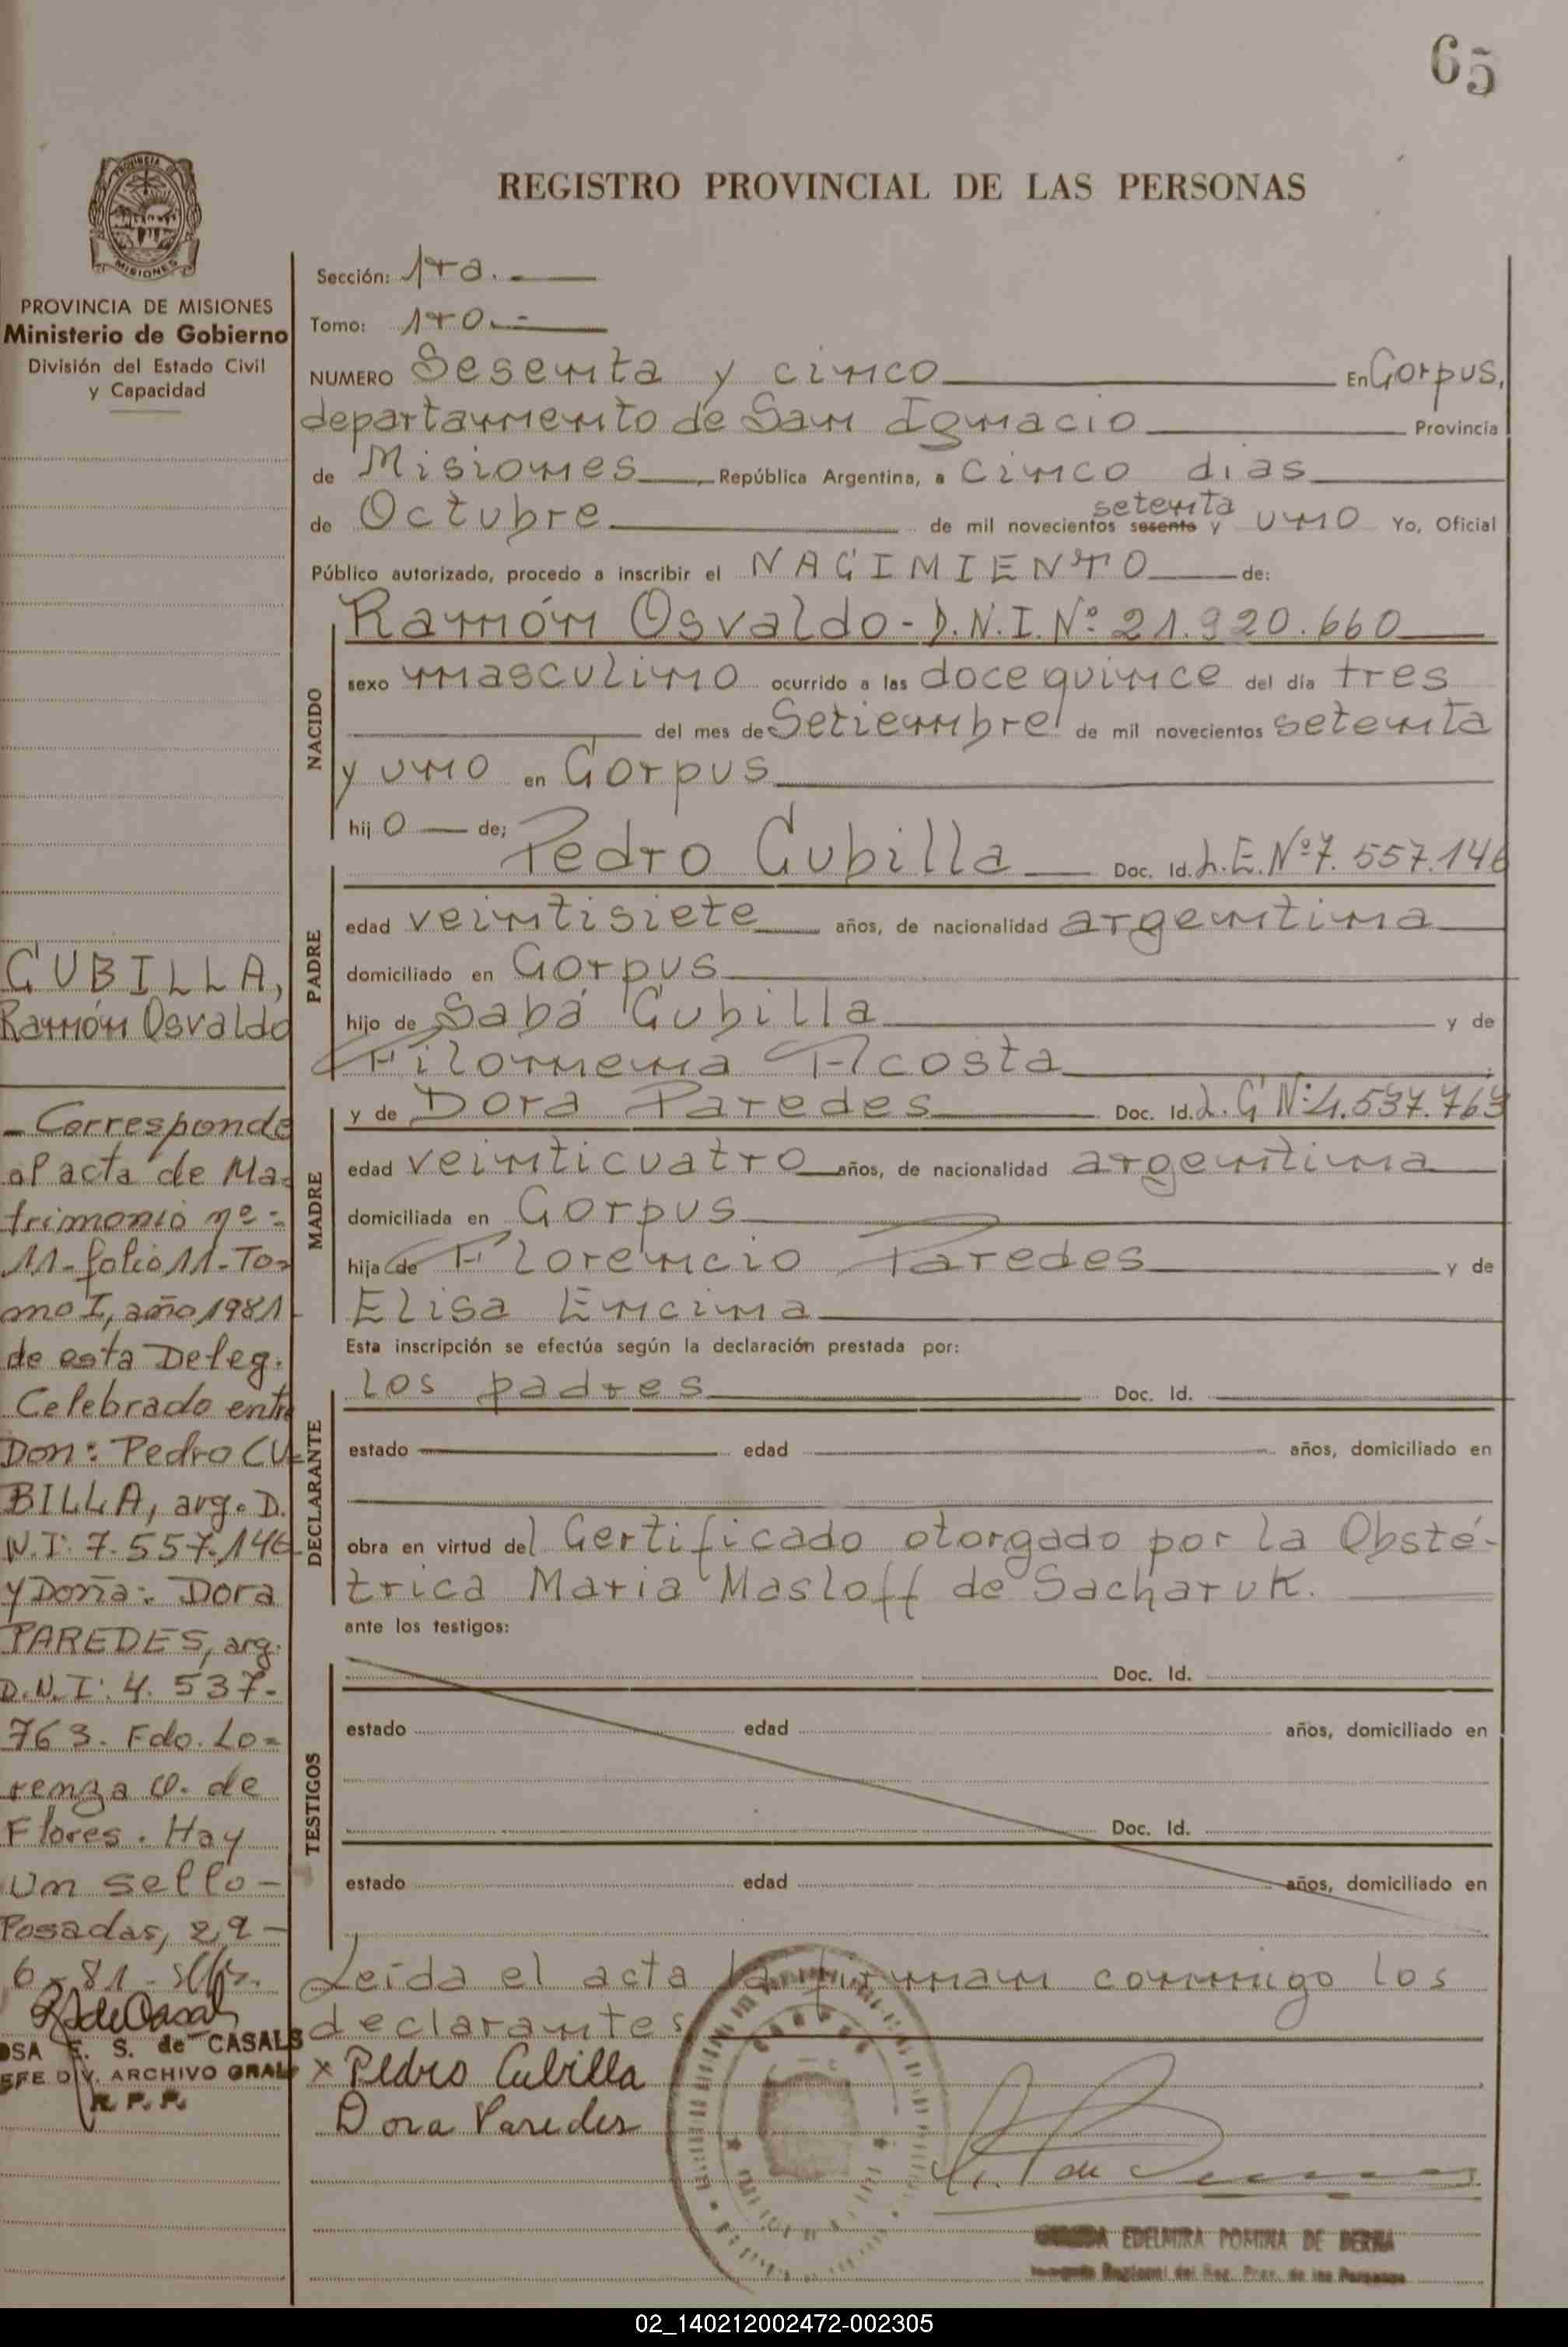 65
REGISTRO PROVINCIAL DE LAS PERSONAS
PROVINCIA
MISIONES
PROVINCIA DE MISIONES
Ministerio de Gobierno
División del Estado Civil
y Capacidad
CUBILLA,
Ramón Osvaldo
- Corresponde
al acta de Ma-
trimonio nº-
11- folio 11- To-
mo I, año 1981
de esta Deleg.
Celebrado entre
Don: Pedro CU-
BILLA, arg. D.
N.I: 7.557.146
y Doña: Dora
PAREDES, arg.
D.N.I: 4. 537-
763. Fdo. Lo-
renza O. de
Flores. Hay
un sello-
Posadas, 29-
6-81-
OSA E. S. de CASALS
EFE DIV. ARCHIVO GRAL
R. P. P.
Sección: 1ra.
Tomo: 1ro.-
NUMERO Sesenta y cinco En Corpus,
departamento de San Ignacio Provincia
de Misiones, República Argentina, a cinco dias
setenta
de Octubre de mil novecientos sesenta y uno Yo, Oficial
Público autorizado, procedo a inscribir el NACIMIENTO de:
NACIDO
Ramón Osvaldo- D.N.I. Nº 21.920.660
sexo masculino ocurrido a las doce quince del día tres
del mes de Setiembre de mil novecientos setenta
y uno en Corpus
hijo de;
PADRE
Pedro Cubilla Doc. Id. L.E. Nº 7.557.146
edad veintisiete años, de nacionalidad argentina
domiciliado en Corpus
hijo de Sabá Cubilla y de
Filomena Acosta
MADRE
y de Dora Paredes Doc. Id. L.C Nº 4.537.763
edad veinticuatro años, de nacionalidad argentina
domiciliada en Corpus
hija de Florencio Paredes y de
Elisa Encina
Esta inscripción se efectúa según la declaración prestada por:
DECLARANTE
los padres Doc. Id.
estado edad años, domiciliado en
obra en virtud del Certificado otorgado por la Obsté-
trica Maria Masloff de Sacharuk.
ante los testigos:
TESTIGOS
Doc. Id.
estado edad años, domiciliado en
Doc. Id.
estado edad años, domiciliado en
Leída el acta la firman conmigo los
declarantes
x Pedro Cubilla
Dora Paredes
EDELMIRA POMINA DE BERRA
Regional del Reg. Prov. de las Personas
02_140212002472-002305